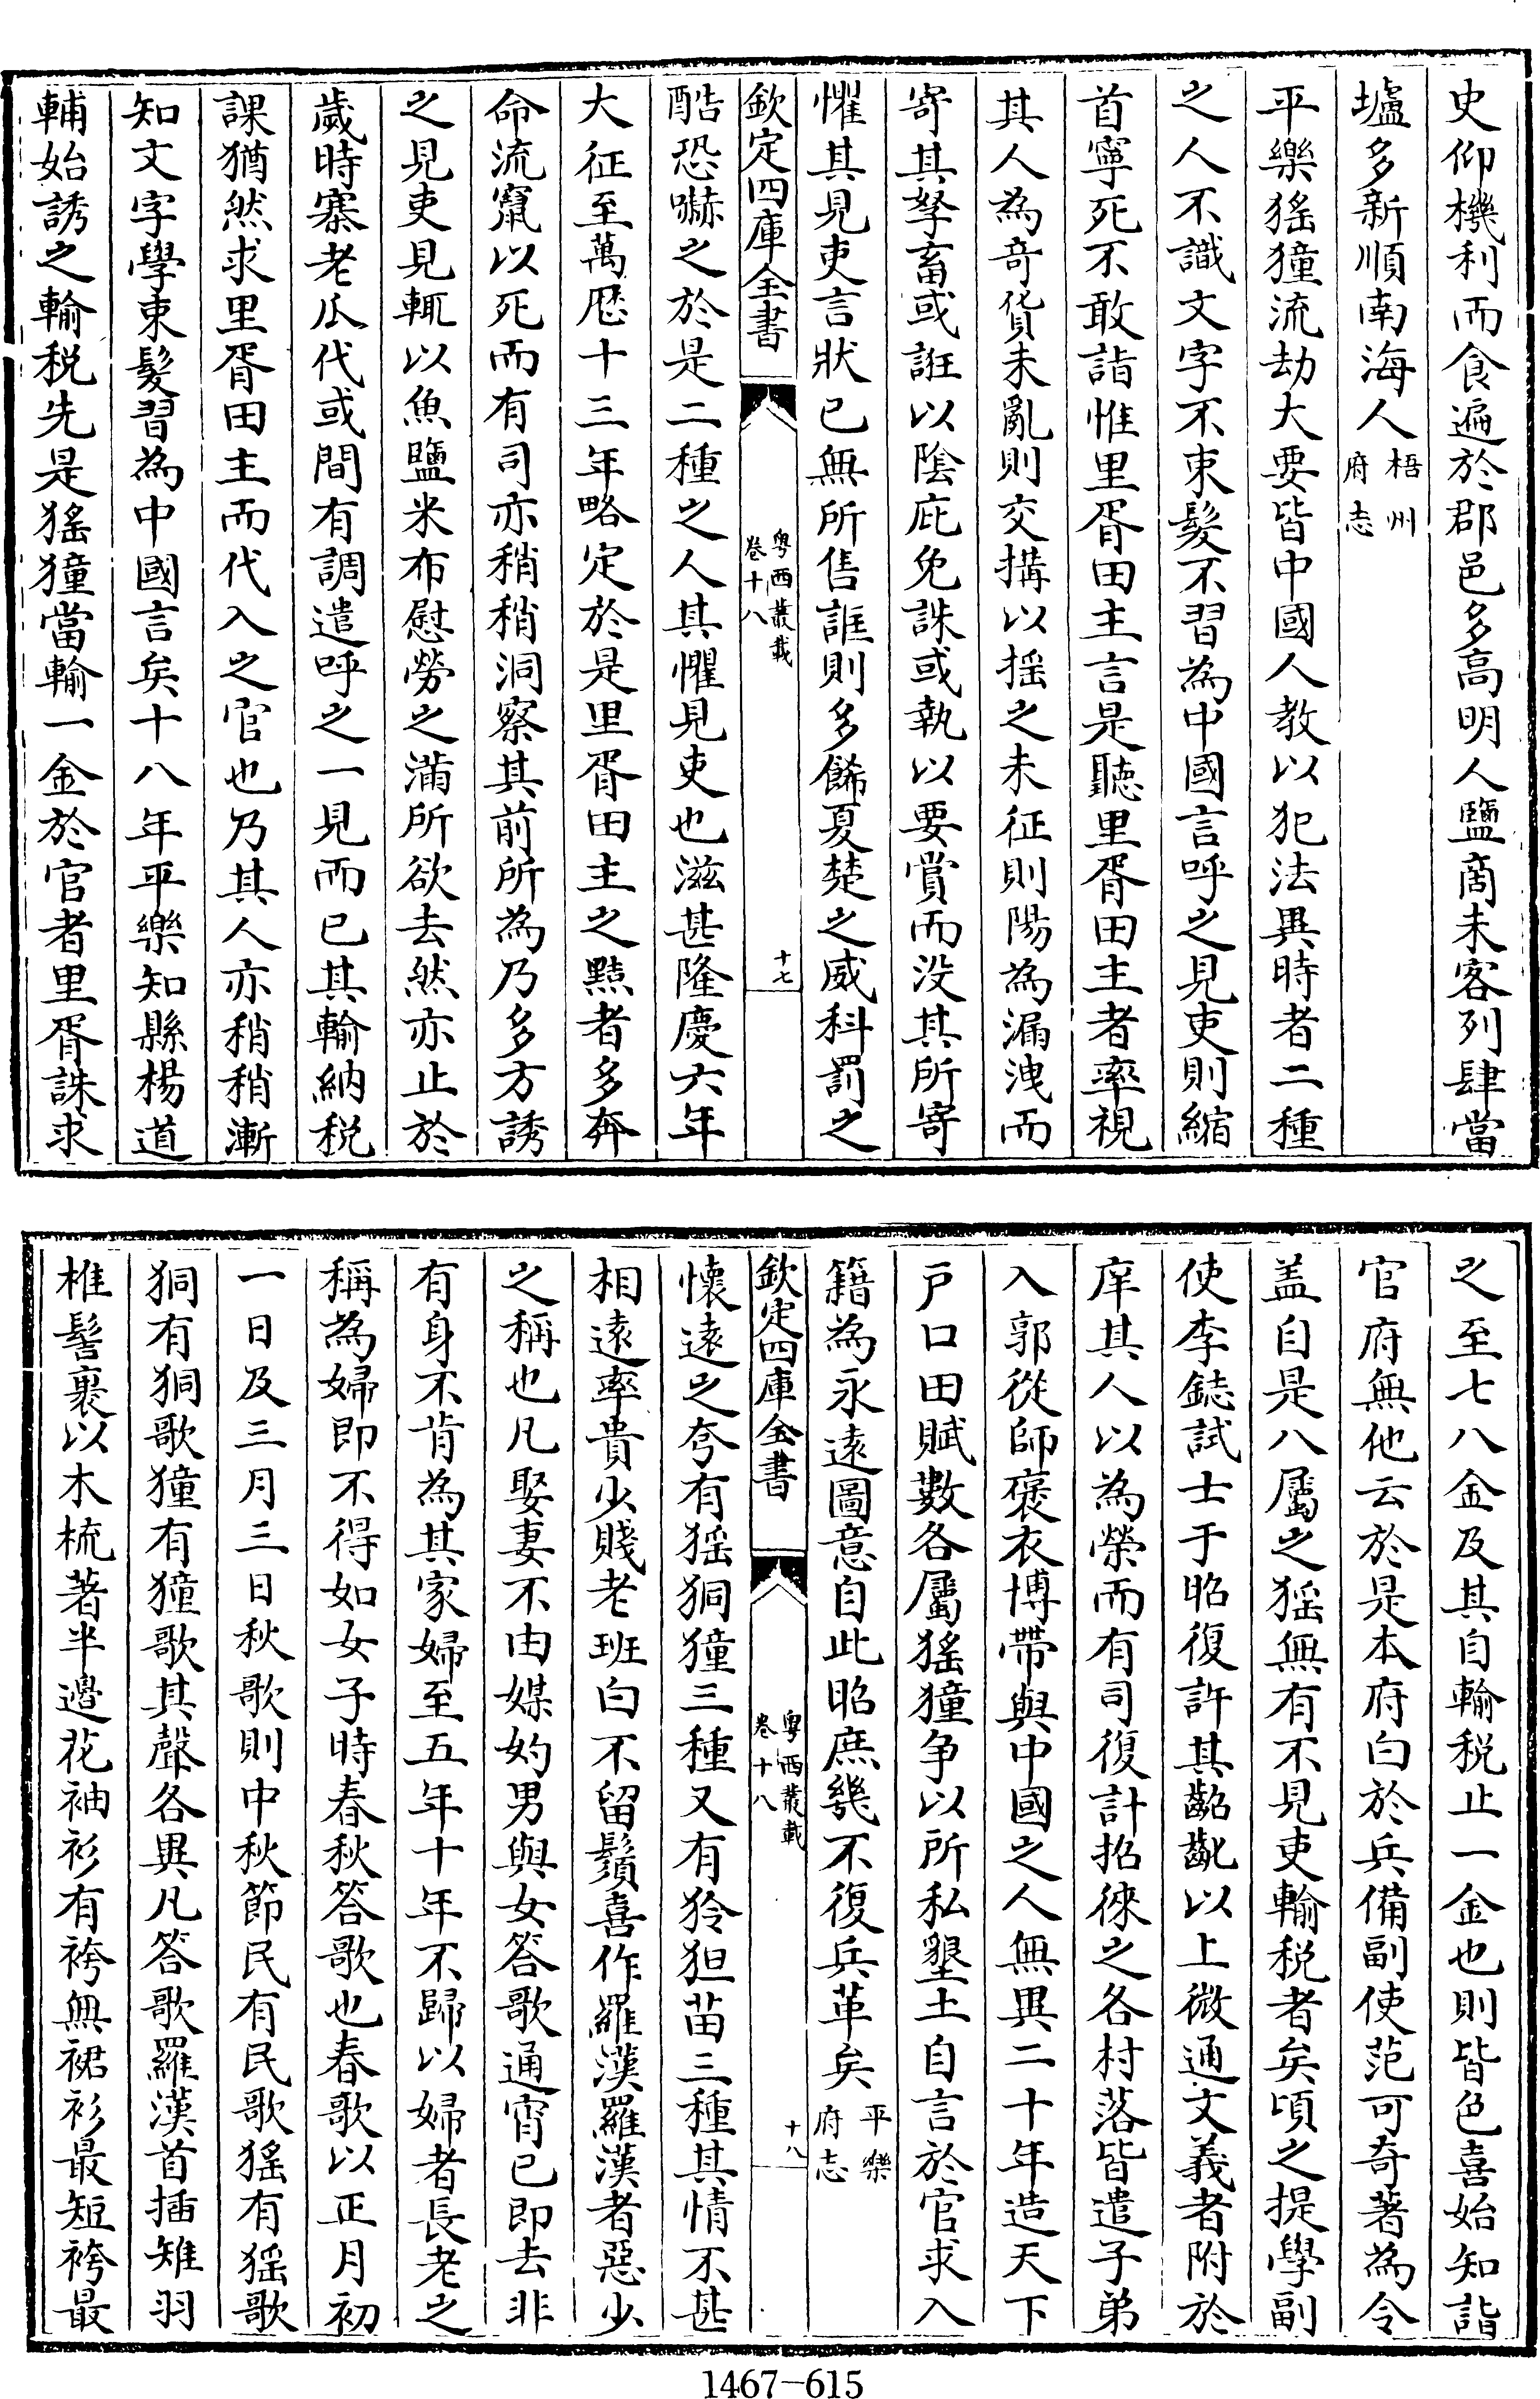 史仰機利而食遍於郡邑多高明人鹽商木客列肆當
壚多新順南海人梧州府志
平樂猺獞流劫大要皆中國人教以犯法異時者二種
之人不識文字不束髮不習為中國言呼之見吏則縮
首寧死不敢詣惟里胥田主言是聽里胥田主者率視
其人為奇貨未亂則交搆以摇之未征則陽為漏洩而
寄其孥畜或誑以陰庇免誅或執以要賞而没其所寄
懼其見吏言狀已無所售誑則多餙夏楚之威科罰之
欽定四庫全書
粤西叢載
卷十八
十七
酷恐嚇之於是二種之人其懼見吏也滋甚隆慶六年
大征至萬厯十三年略定於是里胥田主之黠者多奔
命流竄以死而有司亦稍稍洞察其前所為乃多方誘
之見吏見輒以魚鹽米布慰勞之滿所欲去然亦止於
歲時寨老瓜代或間有調遣呼之一見而已其輸納税
課猶然求里胥田主而代入之官也乃其人亦稍稍漸
知文字學束髮習為中國言矣十八年平樂知縣楊道
輔始誘之輸税先是猺獞當輸一金於官者里胥誅求
之至七八金及其自輸税止一金也則皆色喜始知詣
官府無他云於是本府白於兵備副使范可奇著為令
盖自是八屬之猺無有不見吏輸税者矣頃之提學副
使李鋕試士于昭復許其齠齔以上微通文義者附於
庠其人以為榮而有司復計招徠之各村落皆遣子弟
入郭從師褒衣博帶與中國之人無異二十年造天下
戸口田賦數各屬猺獞争以所私墾土自言於官求入
籍為永遠圖意自此昭庶幾不復兵革矣平樂府志
欽定四庫全書
粤西叢載
卷十八
十八
懷遠之夸有猺狪獞三種又有狑狚苗三種其情不甚
相遠率貴少賤老班白不留鬚喜作羅漢羅漢者惡少
之稱也凡娶妻不由媒妁男與女答歌通宵已即去非
有身不肯為其家婦至五年十年不歸以婦者長老之
稱為婦即不得如女子時春秋答歌也春歌以正月初
一日及三月三日秋歌則中秋節民有民歌猺有猺歌
狪有狪歌獞有獞歌其聲各異凡答歌羅漢首插雉羽
椎髻裹以木梳著半邊花袖衫有袴無裙衫最短袴最
1467-615